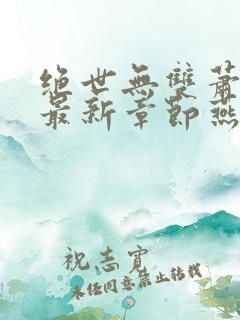 绝世無雙蕭
最新章節燕
祝志寶
未经同意禁止转载